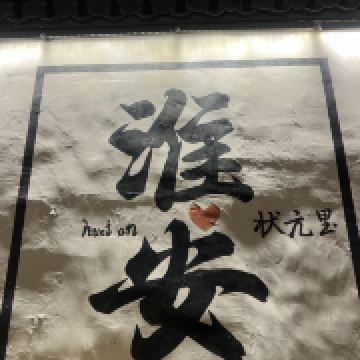 淮
huai an
状元里
安